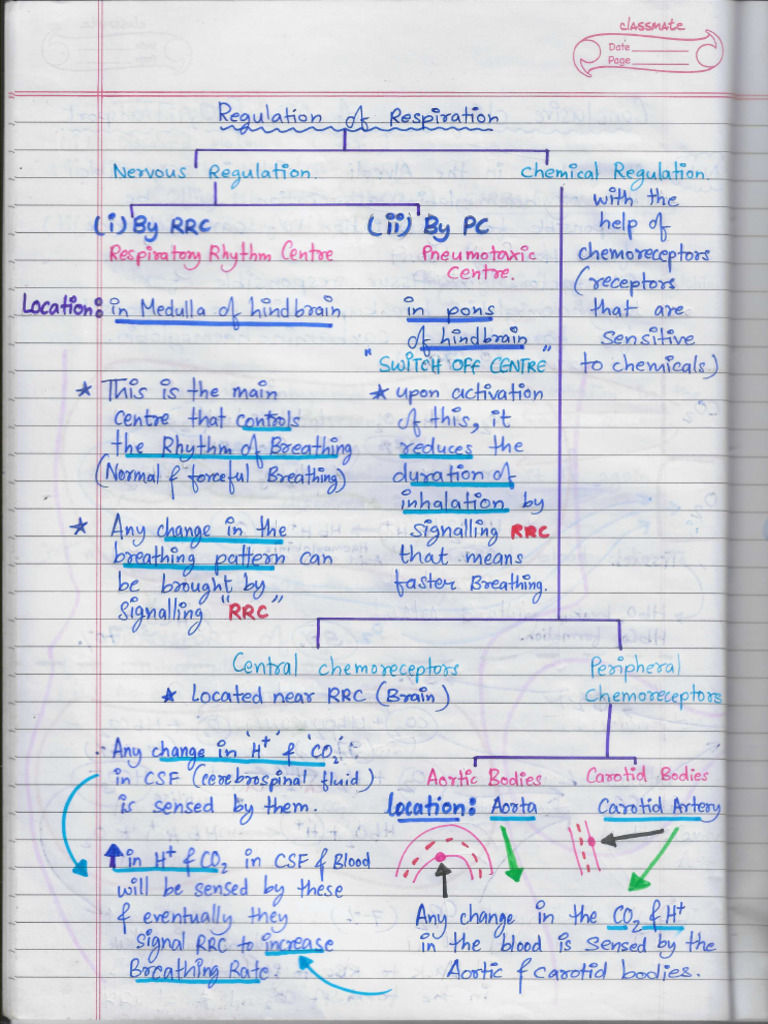 classmate
Date
Page
Regulation of Respiration
Nervous Regulation.
(i) By RRC
Respiratory Rhythm Centre
(ii) By PC
Pneumotaxic
Centre.
Location: in Medulla of hindbrain
in pons
of hindbrain
"SWITCH OFF CENTRE"
★ This is the main
centre that controls
the Rhythm of Breathing
(Normal & forceful Breathing)
★ Any change in the
breathing pattern can
be brought by
signalling "RRC"
★ upon activation
of this, it
reduces the
duration of
inhalation by
signalling RRC
that means
faster Breathing.
Chemical Regulation.
with the
help of
chemoreceptors
(receptors
that are
sensitive
to chemicals.)
Central chemoreceptors
★ Located near RRC (Brain)
Any change in 'H⁺' & 'CO₂'
in CSF (cerebrospinal fluid)
is sensed by them.
↑ in H⁺ & CO₂ in CSF & Blood
will be sensed by these
& eventually they
signal RRC to increase
Breathing Rate.
Peripheral
Chemoreceptors
Aortic Bodies
Carotid Bodies
location: Aorta
Carotid Artery
Any change in the CO₂ & H⁺
in the blood is sensed by the
Aortic & carotid bodies.